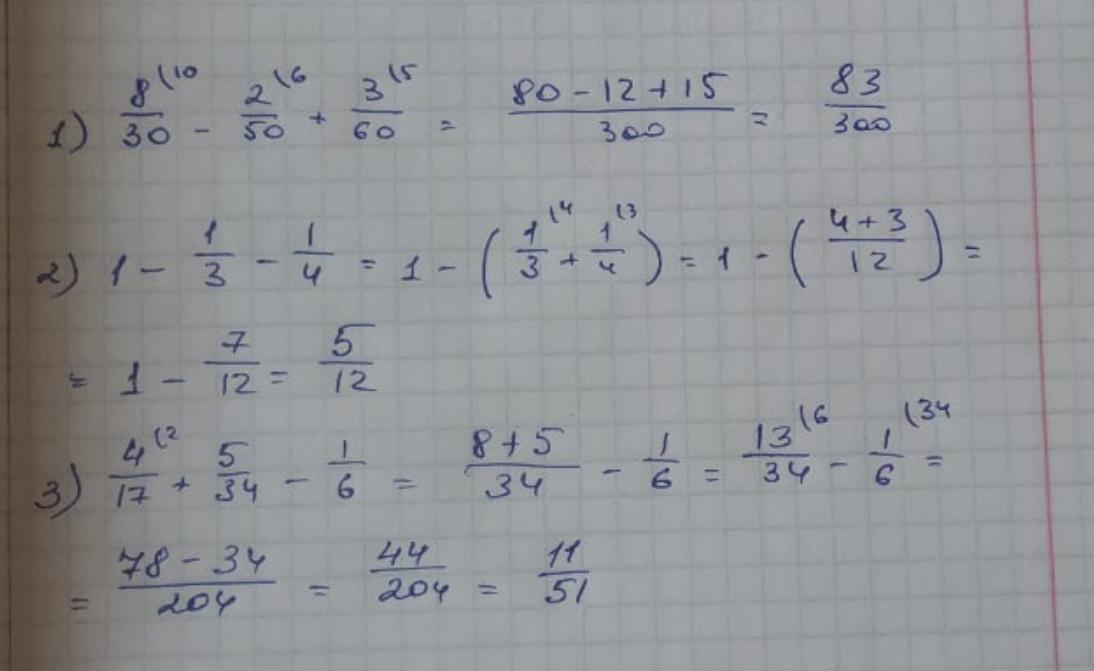 1) 8/30 (10 - 2/50 (6 + 3/60 (5 = (80 - 12 + 15)/300 = 83/300
2) 1 - 1/3 - 1/4 = 1 - (1/3 (4 + 1/4 (3) = 1 - ((4 + 3)/12) =
= 1 - 7/12 = 5/12
3) 4/17 (2 + 5/34 - 1/6 = (8 + 5)/34 - 1/6 = 13/34 (6 - 1/6 (34 =
= (78 - 34)/204 = 44/204 = 11/51